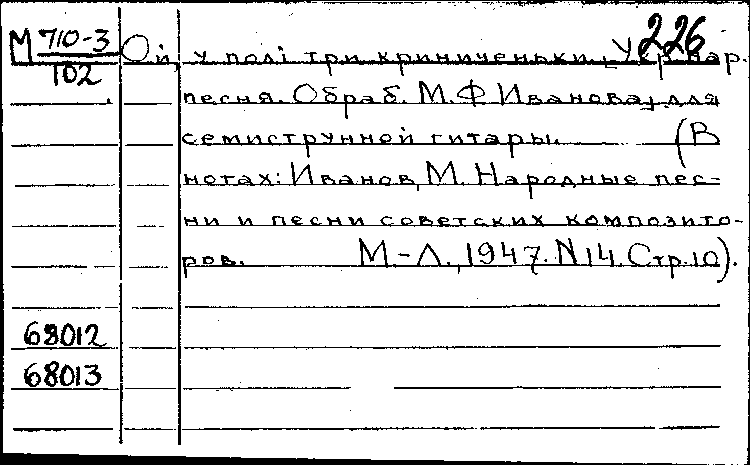 226
М 710-3
102
Ой, у полі три криниченьки. Укр. нар.
песня. Обраб. М.Ф. Иванова, для
семиструнной гитары. (В
нотах: Иванов, М. Народные пес-
ни и песни советских композито-
ров. М.-Л., 1947. N 14. Стр. 10).
68012
68013